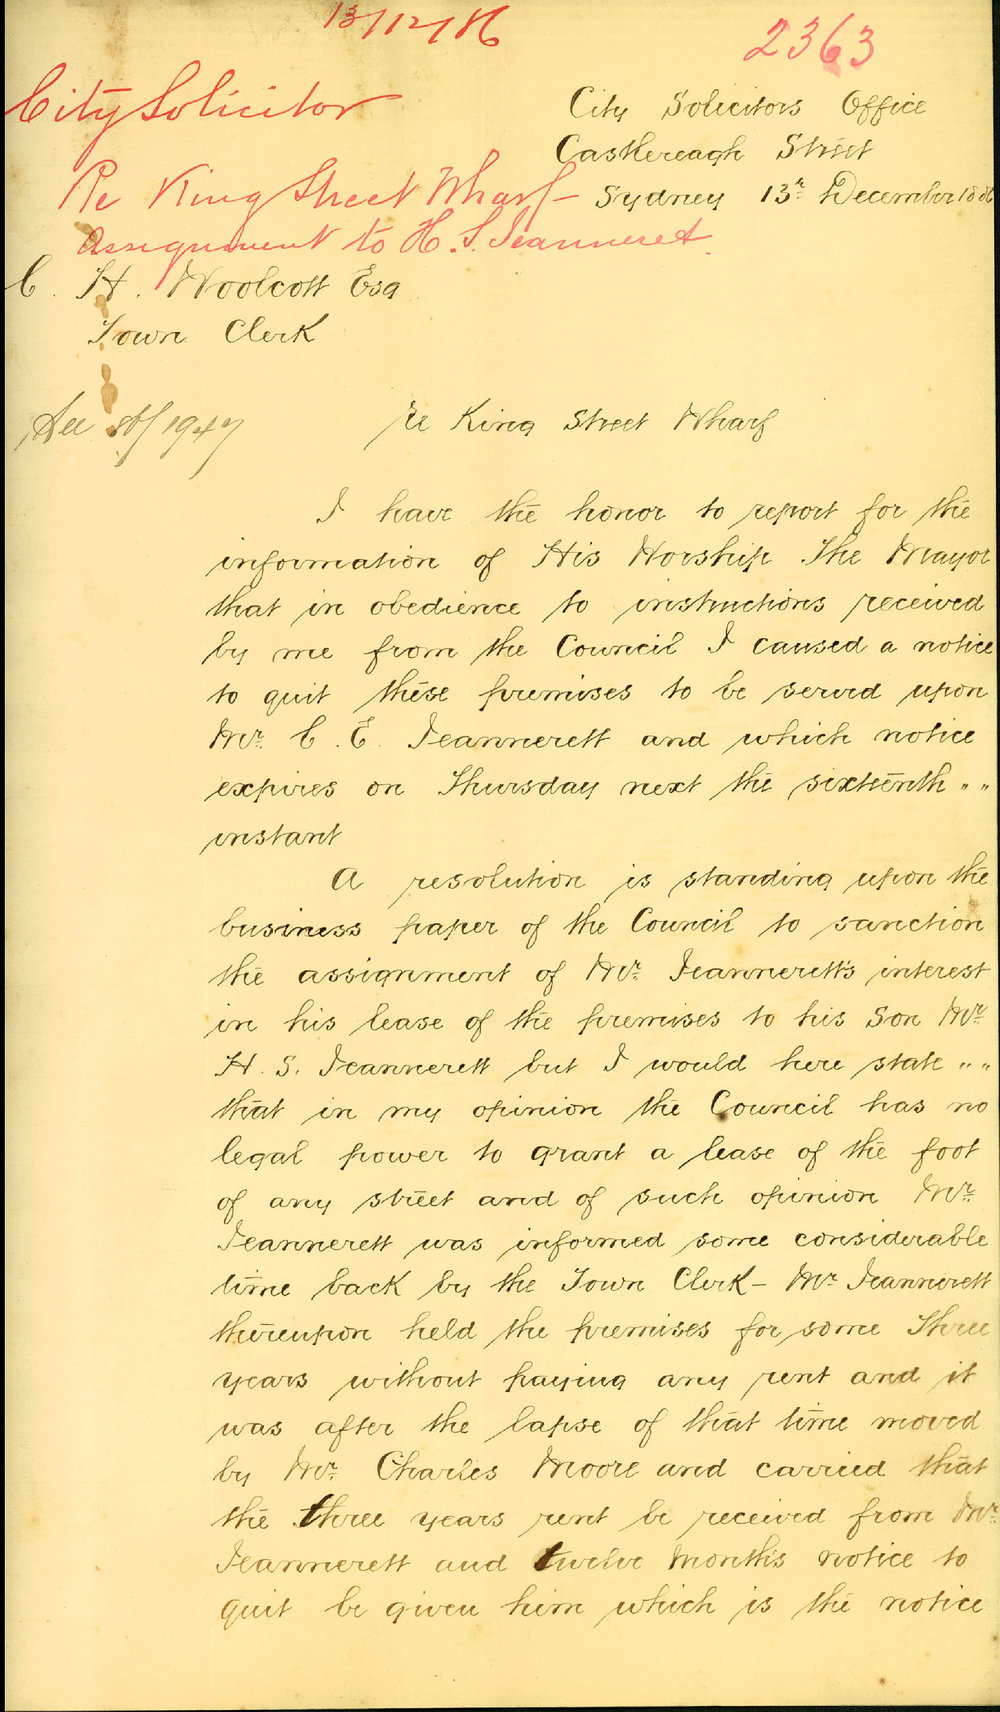 13/12/86
2363
City Solicitor
Re King Street Wharf
Assignment to H. S. Jeanneret.
City Solicitors Office
Castlereagh Street
Sydney 13th December 1886
C. H. Woolcott Esq
Town Clerk
See 86/1947
re King Street Wharf
I have the honor to report for the
information of His Worship The Mayor
that in obedience to instructions received
by me from the Council I caused a notice
to quit these premises to be served upon
Mr. C. E. Jeannerett and which notice
expires on Thursday next the sixteenth " "
instant
A resolution is standing upon the
business paper of the Council to sanction
the assignment of Mr. Jeannerett's interest
in his lease of the premises to his Son Mr.
H. S. Jeannerett but I would here state " "
that in my opinion the Council has no
legal power to grant a lease of the foot
of any street and of such opinion Mr.
Jeannerett was informed some considerable
time back by the Town Clerk – Mr. Jeannerett
thereupon held the premises for some Three
years without paying any rent and it
was after the lapse of that time moved
by Mr. Charles Moore and carried that
the three years rent be received from Mr.
Jeannerett and twelve months notice to
quit be given him which is the notice